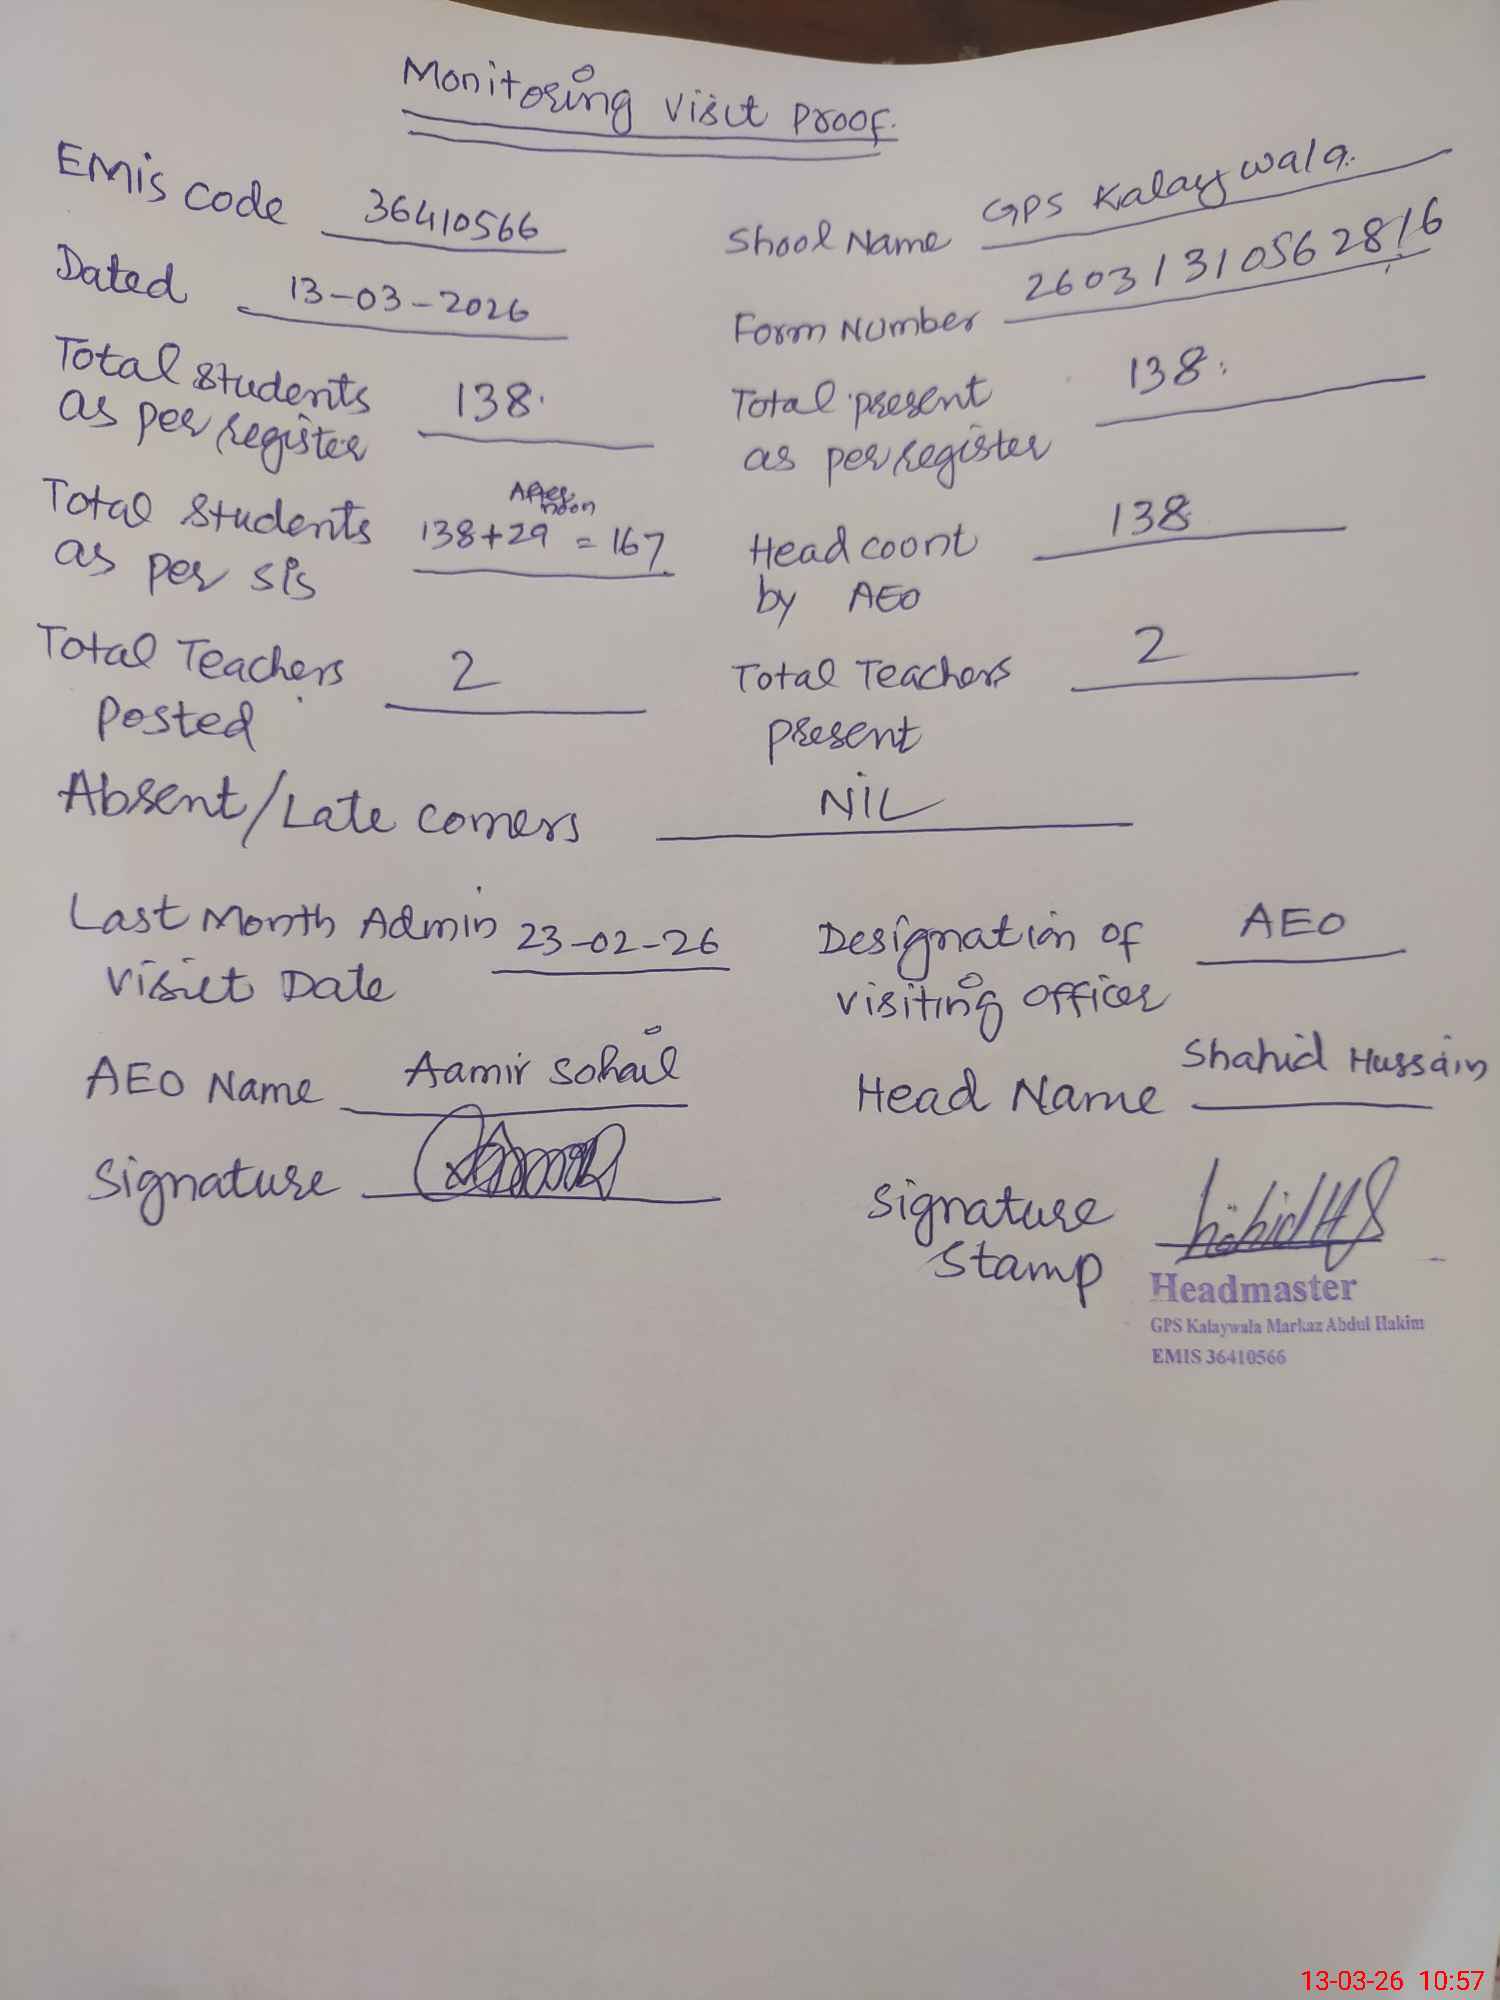 Monitoring visit proof.
EMis code 36410566
Shool Name GPS Kalaywala.
Dated 13-03-2026
Form Number 2603131056 2816
Total students as per register 138.
Total present as per register 138.
Total students as per sis 138+29 After noon = 167
Head coont by AEO 138
Total Teachers posted 2
Total Teachers present 2
Absent/Late comers NIL
Last Month Admin visit Date 23-02-26
Designation of visiting officer AEO
AEO Name Aamir Sohail
Head Name Shahid Hussain
Signature
Signature Stamp
Headmaster
GPS Kalaywala Markaz Abdul Hakim
EMIS 36410566
13-03-26 10:57